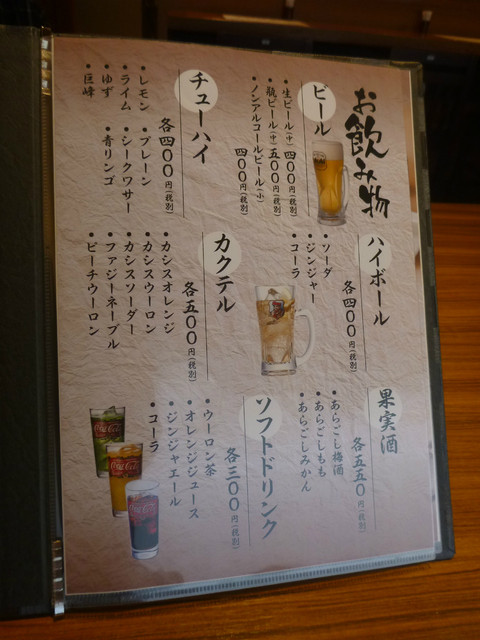 お飲み物
ビール
・生ビール(中) 四〇〇円(税別)
・瓶ビール(中) 五〇〇円(税別)
・ノンアルコールビール(小)
四〇〇円(税別)
チューハイ
各四〇〇円(税別)
・レモン
・ライム
・ゆず
・巨峰
・プレーン
・シークワサー
・青リンゴ
ハイボール
各四〇〇円(税別)
・ソーダ
・ジンジャー
・コーラ
カクテル
各五〇〇円(税別)
・カシスオレンジ
・カシスウーロン
・カシスソーダー
・ファジーネーブル
・ピーチウーロン
果実酒
各五五〇円(税別)
・あらごし梅酒
・あらごしもも
・あらごしみかん
ソフトドリンク
各三〇〇円(税別)
・ウーロン茶
・オレンジジュース
・ジンジャエール
・コーラ
Coca-Cola
Coca-Cola
Coca-Cola